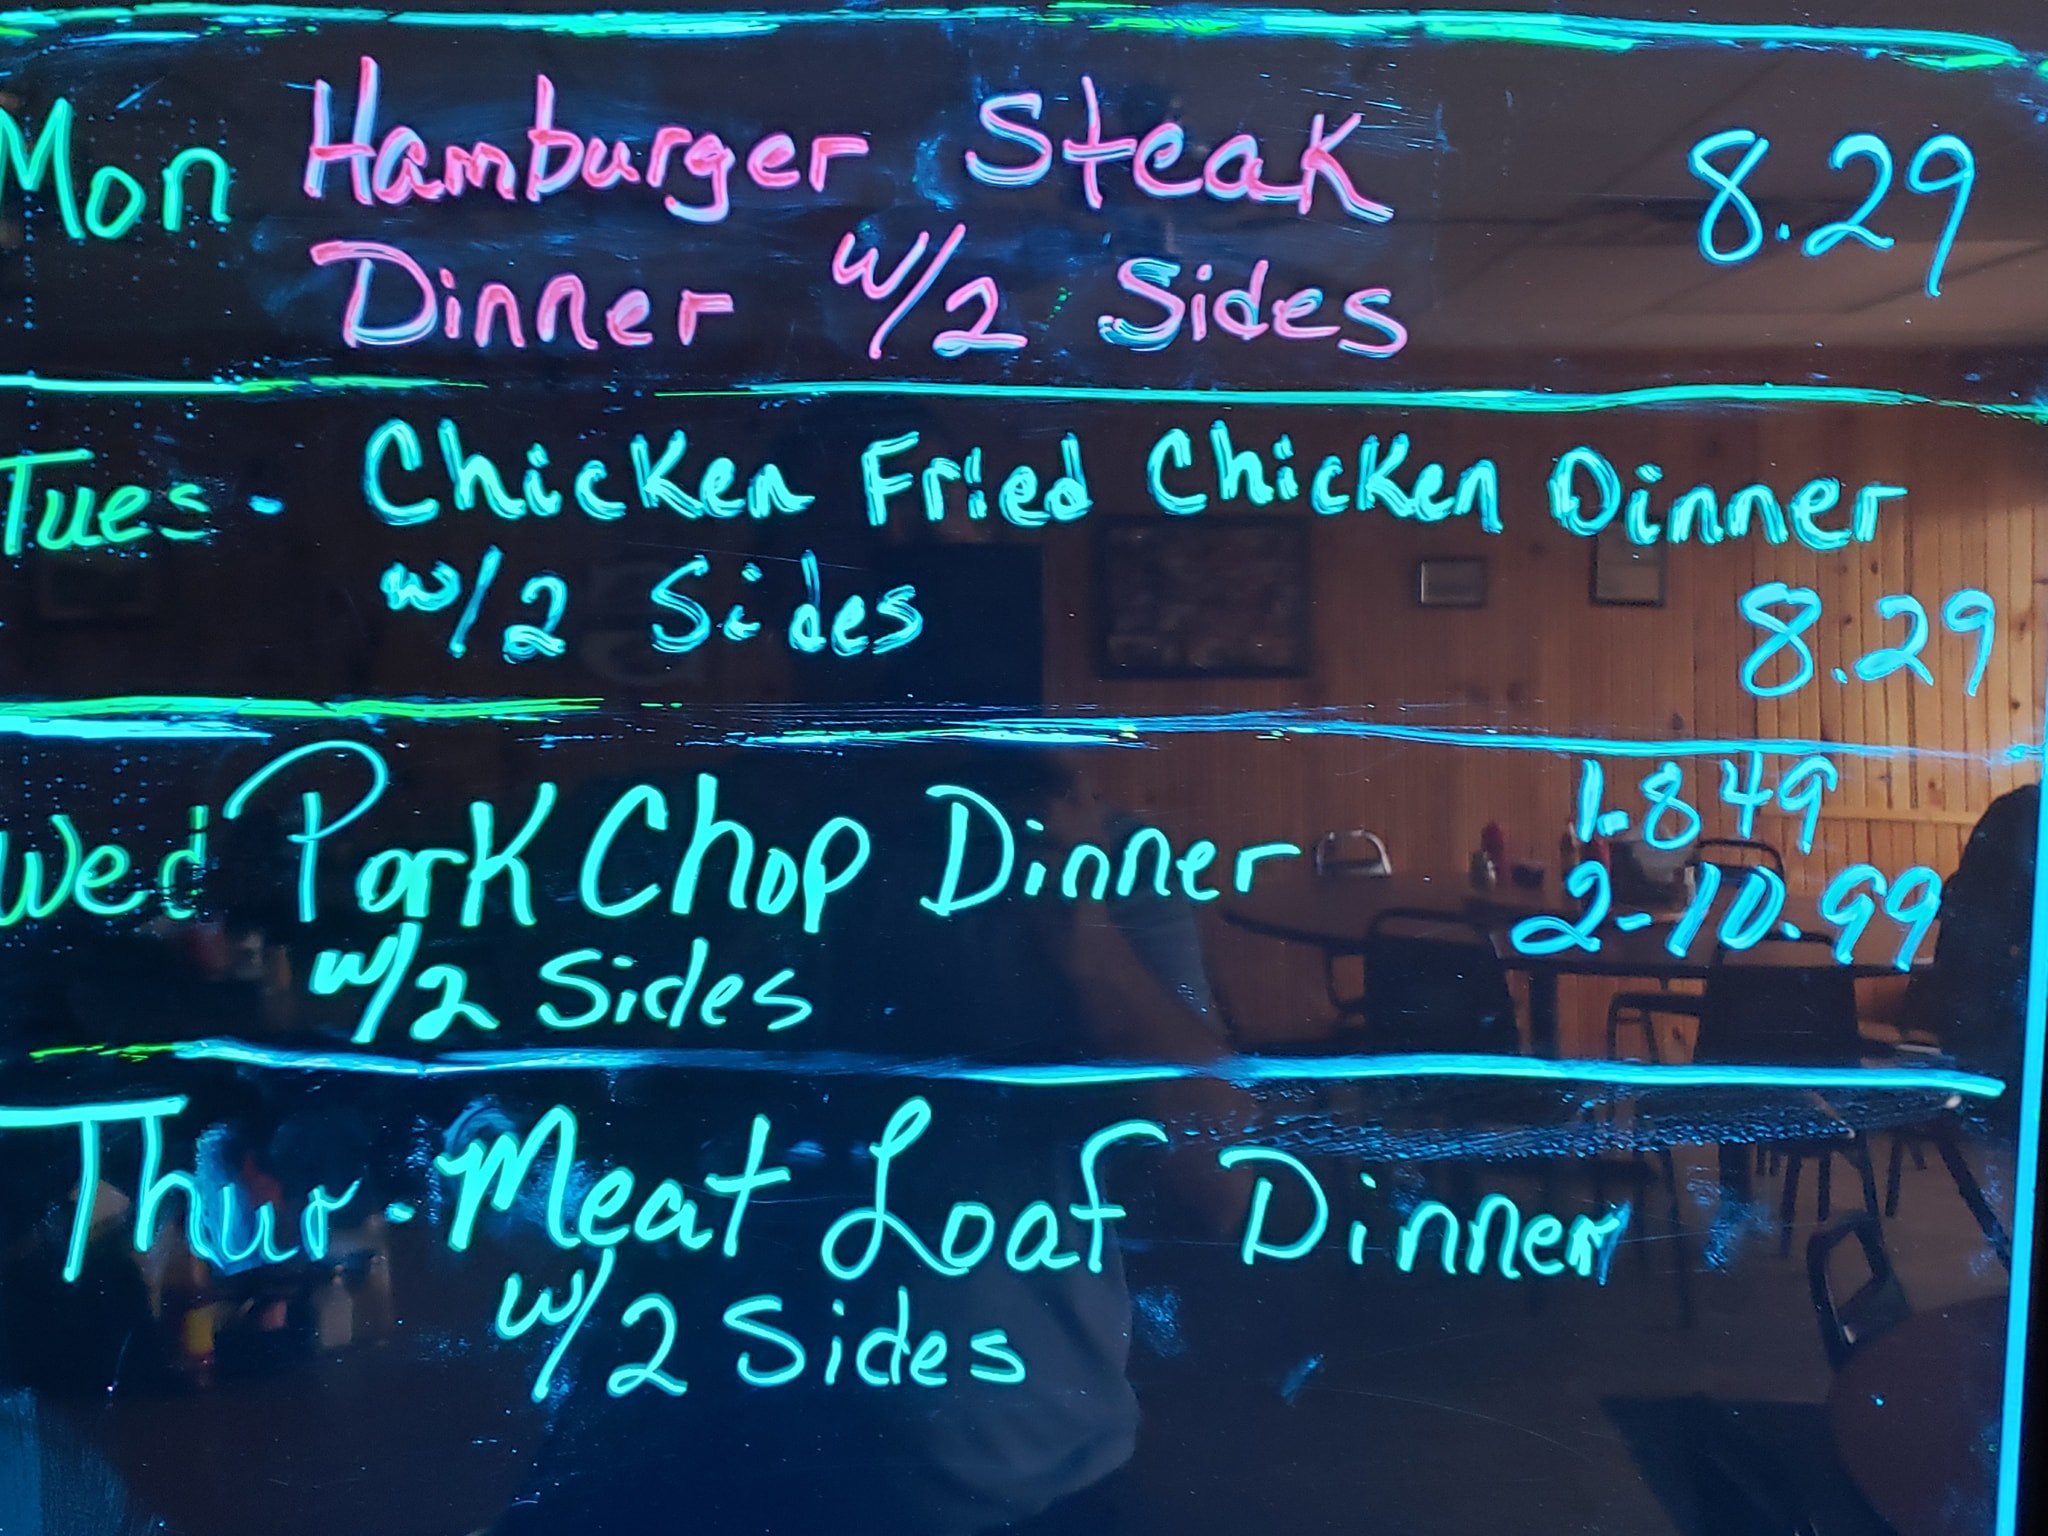 Mon Hamburger Steak 8.29
Dinner w/2 Sides
Tues. Chicken Fried Chicken Dinner
w/2 Sides 8.29
Wed Pork Chop Dinner 1-8 49
2-10.99
w/2 Sides
Thur. Meat Loaf Dinner
w/2 Sides